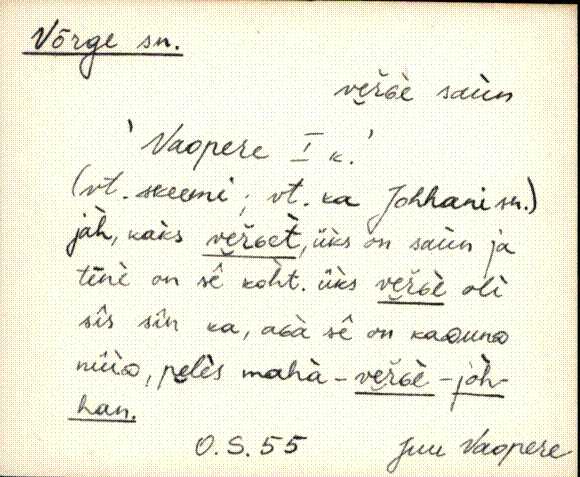 Võrge sn.
ve̮ŕɢè saùn
'Vaopere I k.'
(vt. skeemi; vt. ka Johhani sn.)
jàh, kàks ve̮ŕɢèt, üks on saùn ja
tēnè on sê kòht. üks ve̮ŕɢè olì
sîs sîn ka, aʙà sê on kaᴅunᴅ
nǖᴅ, pe̮lès mahà – ve̮ŕɢè-jòh-
han.
O.S.55 Juu Vaopere